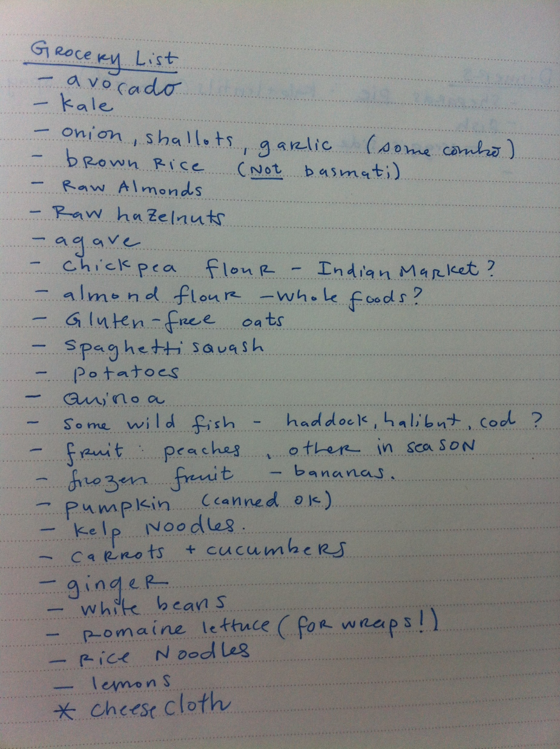 Grocery List
- avocado
- kale
- onion, shallots, garlic (some combo)
- brown Rice (Not basmati)
- Raw Almonds
- Raw hazelnuts
- agave
- chickpea flour - Indian Market?
- almond flour - whole foods?
- Gluten-free oats
- spaghetti squash
- potatoes
- Quinoa
- some wild fish - haddock, halibut, cod?
- fruit: peaches, other in season
- frozen fruit - bananas.
- pumpkin (canned ok)
- kelp Noodles.
- carrots + cucumbers
- ginger
- white beans
- romaine lettuce (for wraps!)
- Rice Noodles
- lemons
* cheese cloth